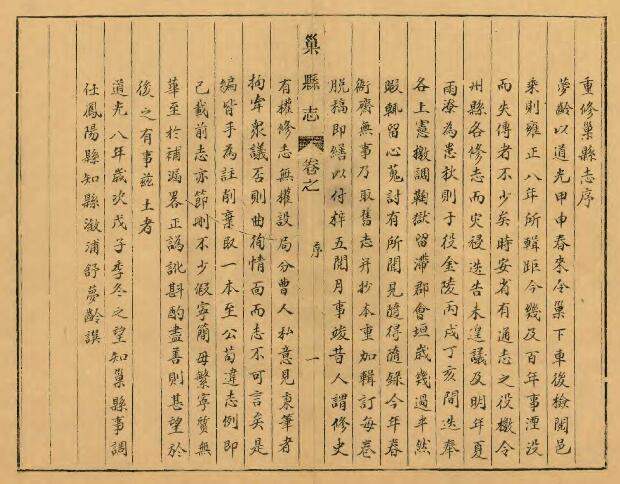 重修巢縣志序
夢齡以道光甲申春來令巢下車後檢閱邑
乘則雍正八年所輯距今幾及百年事湮沒
而失傳者不少矣時安省有通志之役檄令
州縣各修志而災祲迭告未遑議及明年夏
雨潦為患秋則于役金陵丙戌丁亥間迭奉
各上憲檄調鞫獄留滯郡會垣歲幾過半然
暇輒留心蒐討有所聞見隨得隨錄今年春
衙齋無事乃取舊志并抄本重加輯訂每卷
脫稿即繕以付梓五閱月事竣昔人謂修史
巢縣志 卷之 序 一
有權修志無權設局分曹人私意見秉筆者
拘牽眾議否則曲徇情面而志不可言矣是
編皆手為註削棄取一本至公苟違志例即
已載前志亦節刪不少假寧簡毋繁寧質無
華至於補漏畧正譌訛斟酌盡善則甚望於
後之有事兹土者
道光八年歲次戊子季冬之望知巢縣事調
任鳳陽縣知縣溆浦舒夢齡譔